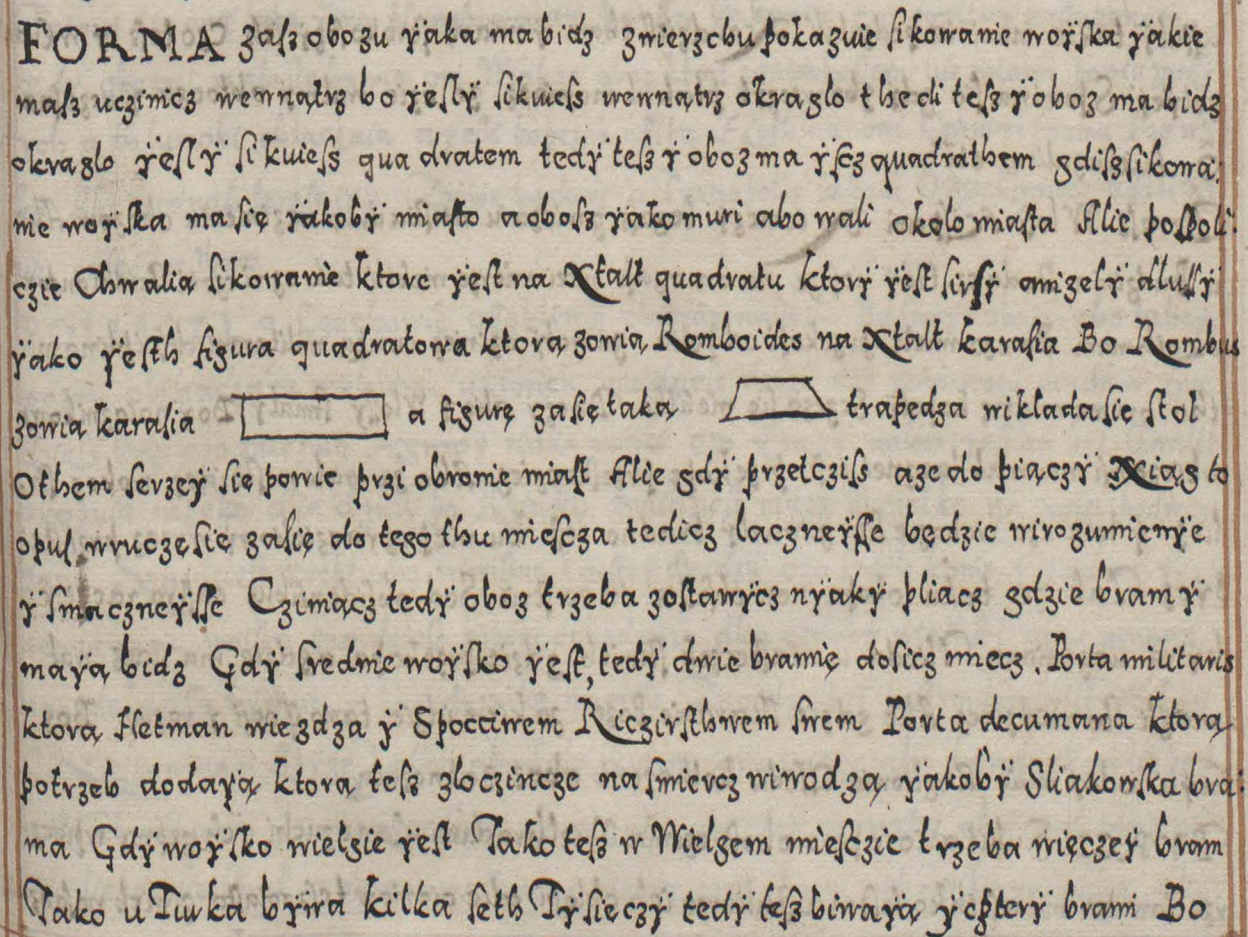 FORMA zasz obozu ÿaka ma bidz zwierzchu pokazuie sikowanie woÿska ÿakie
masz uczinicz wewnątrz bo ÿeslÿ sikuiess wewnątrz okraglo thedi tesz ÿ oboz ma bidz
okraglo ÿeslÿ sikuiess quadratem tedÿ tesz ÿ oboz ma ÿscz quadrathem gdisz sikowa:
nie woÿska ma się ÿakobÿ miasto a obosz ÿako muri abo wali okolo miasta Alie pospoli:
czie Chwalią sikowanie ktore ÿest na Xtalt quadratu ktorÿ ÿest sirsÿ anizelÿ dlussÿ
ÿako ÿesth figura quadratowa ktorą zowią Romboides na Xtalt karasia Bo Rombus
zowią karasia a figurę zasię taką trapedza wikladasie stol
Othem serzeÿ się powie przi obronie miast Alie gdÿ przetcziss aze do piączÿ Xiąg to
opus wruczęsię zasię do tego thu miescza tedicz laczneÿsse będzie wirozumienÿe
ÿ smaczneÿsse Cziniącz tedÿ oboz trzeba zostawÿcz nÿakÿ pliacz gdzie bramÿ
maÿą bidz Gdÿ srednie woÿsko ÿest, tedÿ dwie bramię dosicz miecz. Porta militaris
ktorą Hetman wiezdza ÿ Spocciwem Riczirsthwem swem Porta decumana ktorą
potrzeb dodaÿą ktorą tesz zloczincze na smiercz wiwodzą ÿakobÿ Sliakowska bra:
ma Gdÿ woÿsko wielgie ÿest Jako tesz w Wielgem miesczie trzeba więczeÿ bram
Jako u Turka bÿwa kilka seth Tÿsięczÿ tedÿ tesz biwaÿą ÿ cpterÿ brami Bo